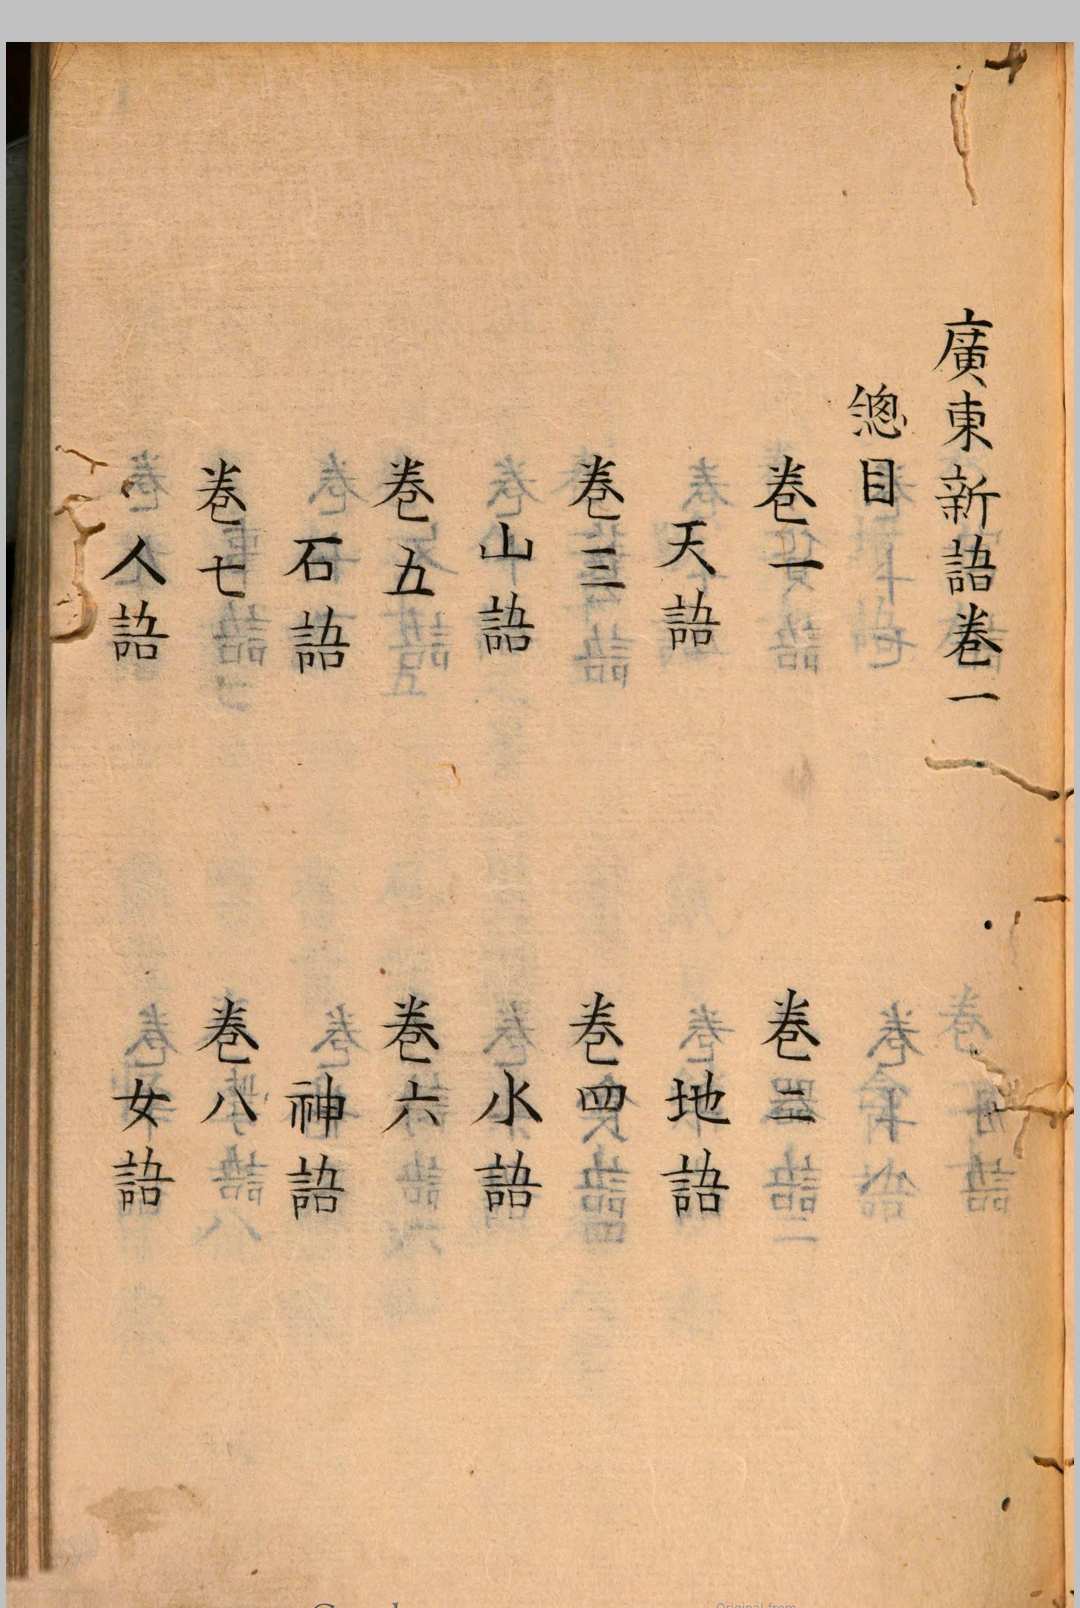 廣東新語卷一
總目
卷一
卷二
天語
地語
卷三
卷四
山語
水語
卷五
卷六
石語
神語
卷七
卷八
人語
女語
Original from